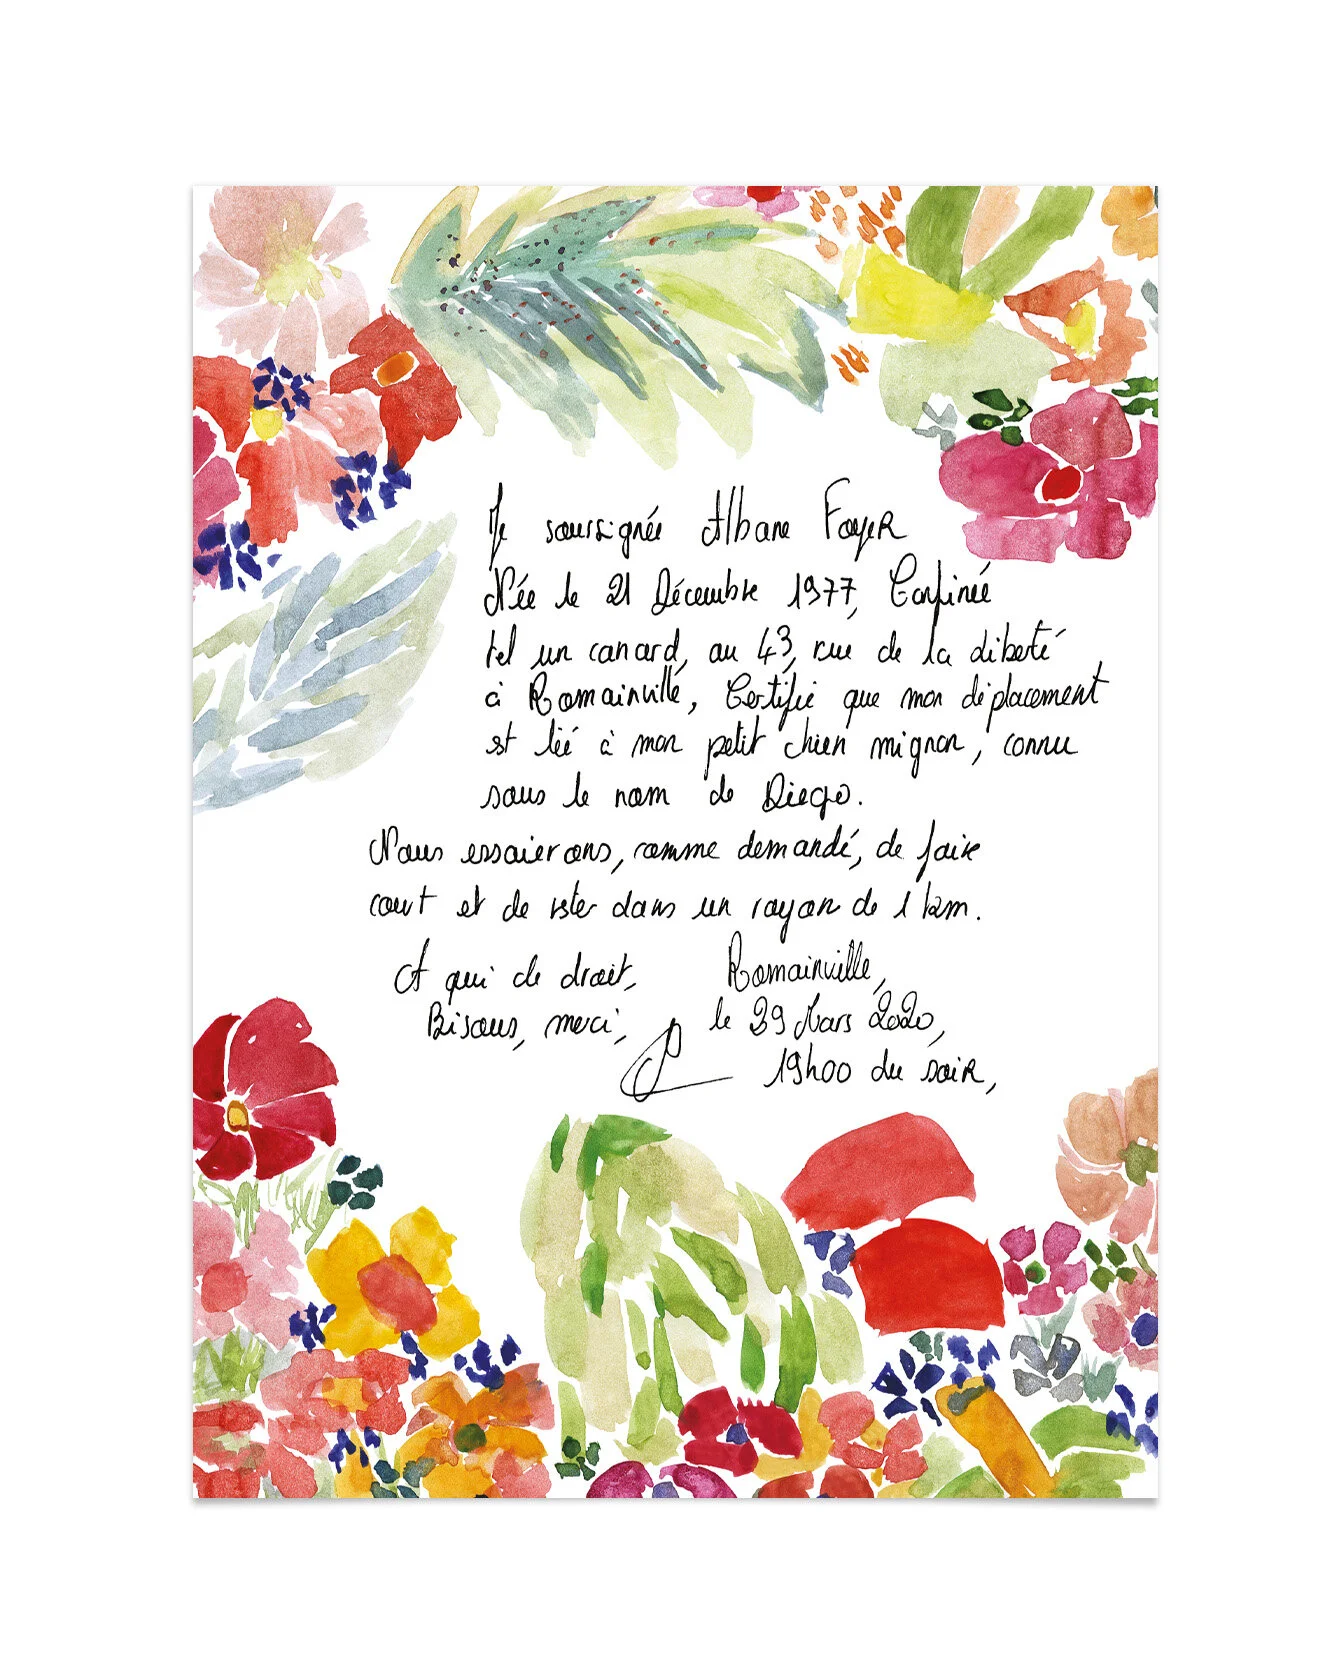 Je soussignée Albane Foyer
Née le 21 Décembre 1977, Confinée
tel un canard, au 43, rue de la liberté
à Romainville, Certifie que mon déplacement
est lié à mon petit chien mignon, connu
sous le nom de Diego.
Nous essaierons, comme demandé, de faire
court et de rester dans un rayon de 1 km.
A qui de droit,
Bisous, merci,
Romainville,
le 29 Mars 2020,
19h00 du soir,